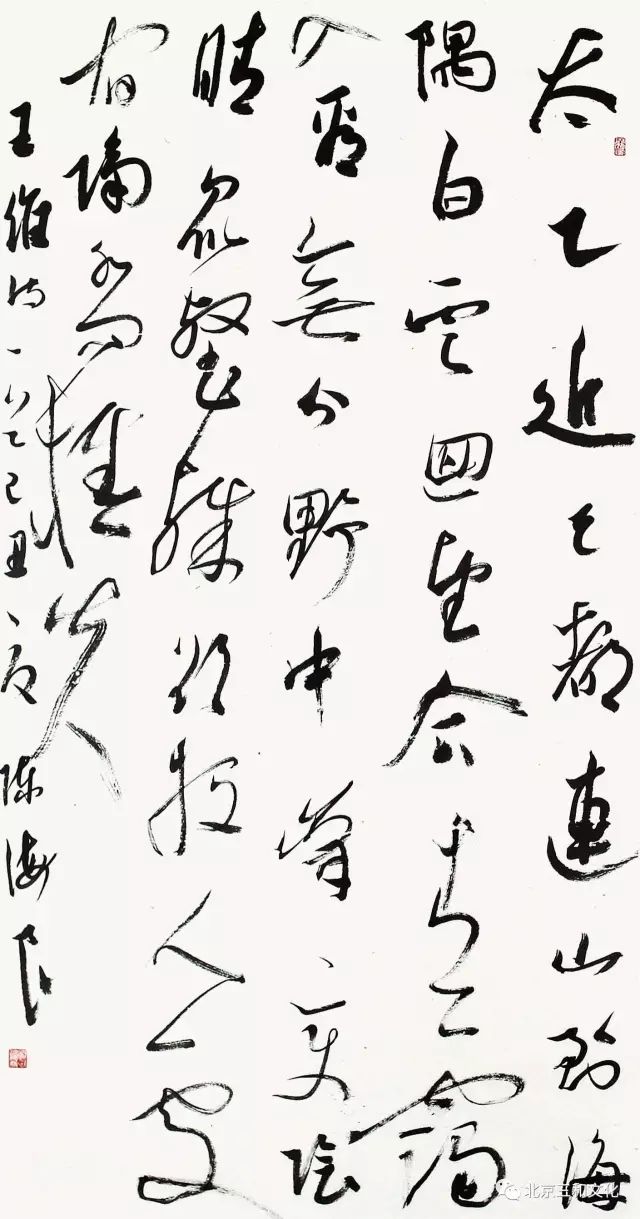 太乙近天都連山到海
隅白雲迴望合青靄
入看無分野中峰變陰
晴眾壑殊欲投人處
宿隔水問樵夫
王維詩一首己丑夏陳海良
北京三和文化